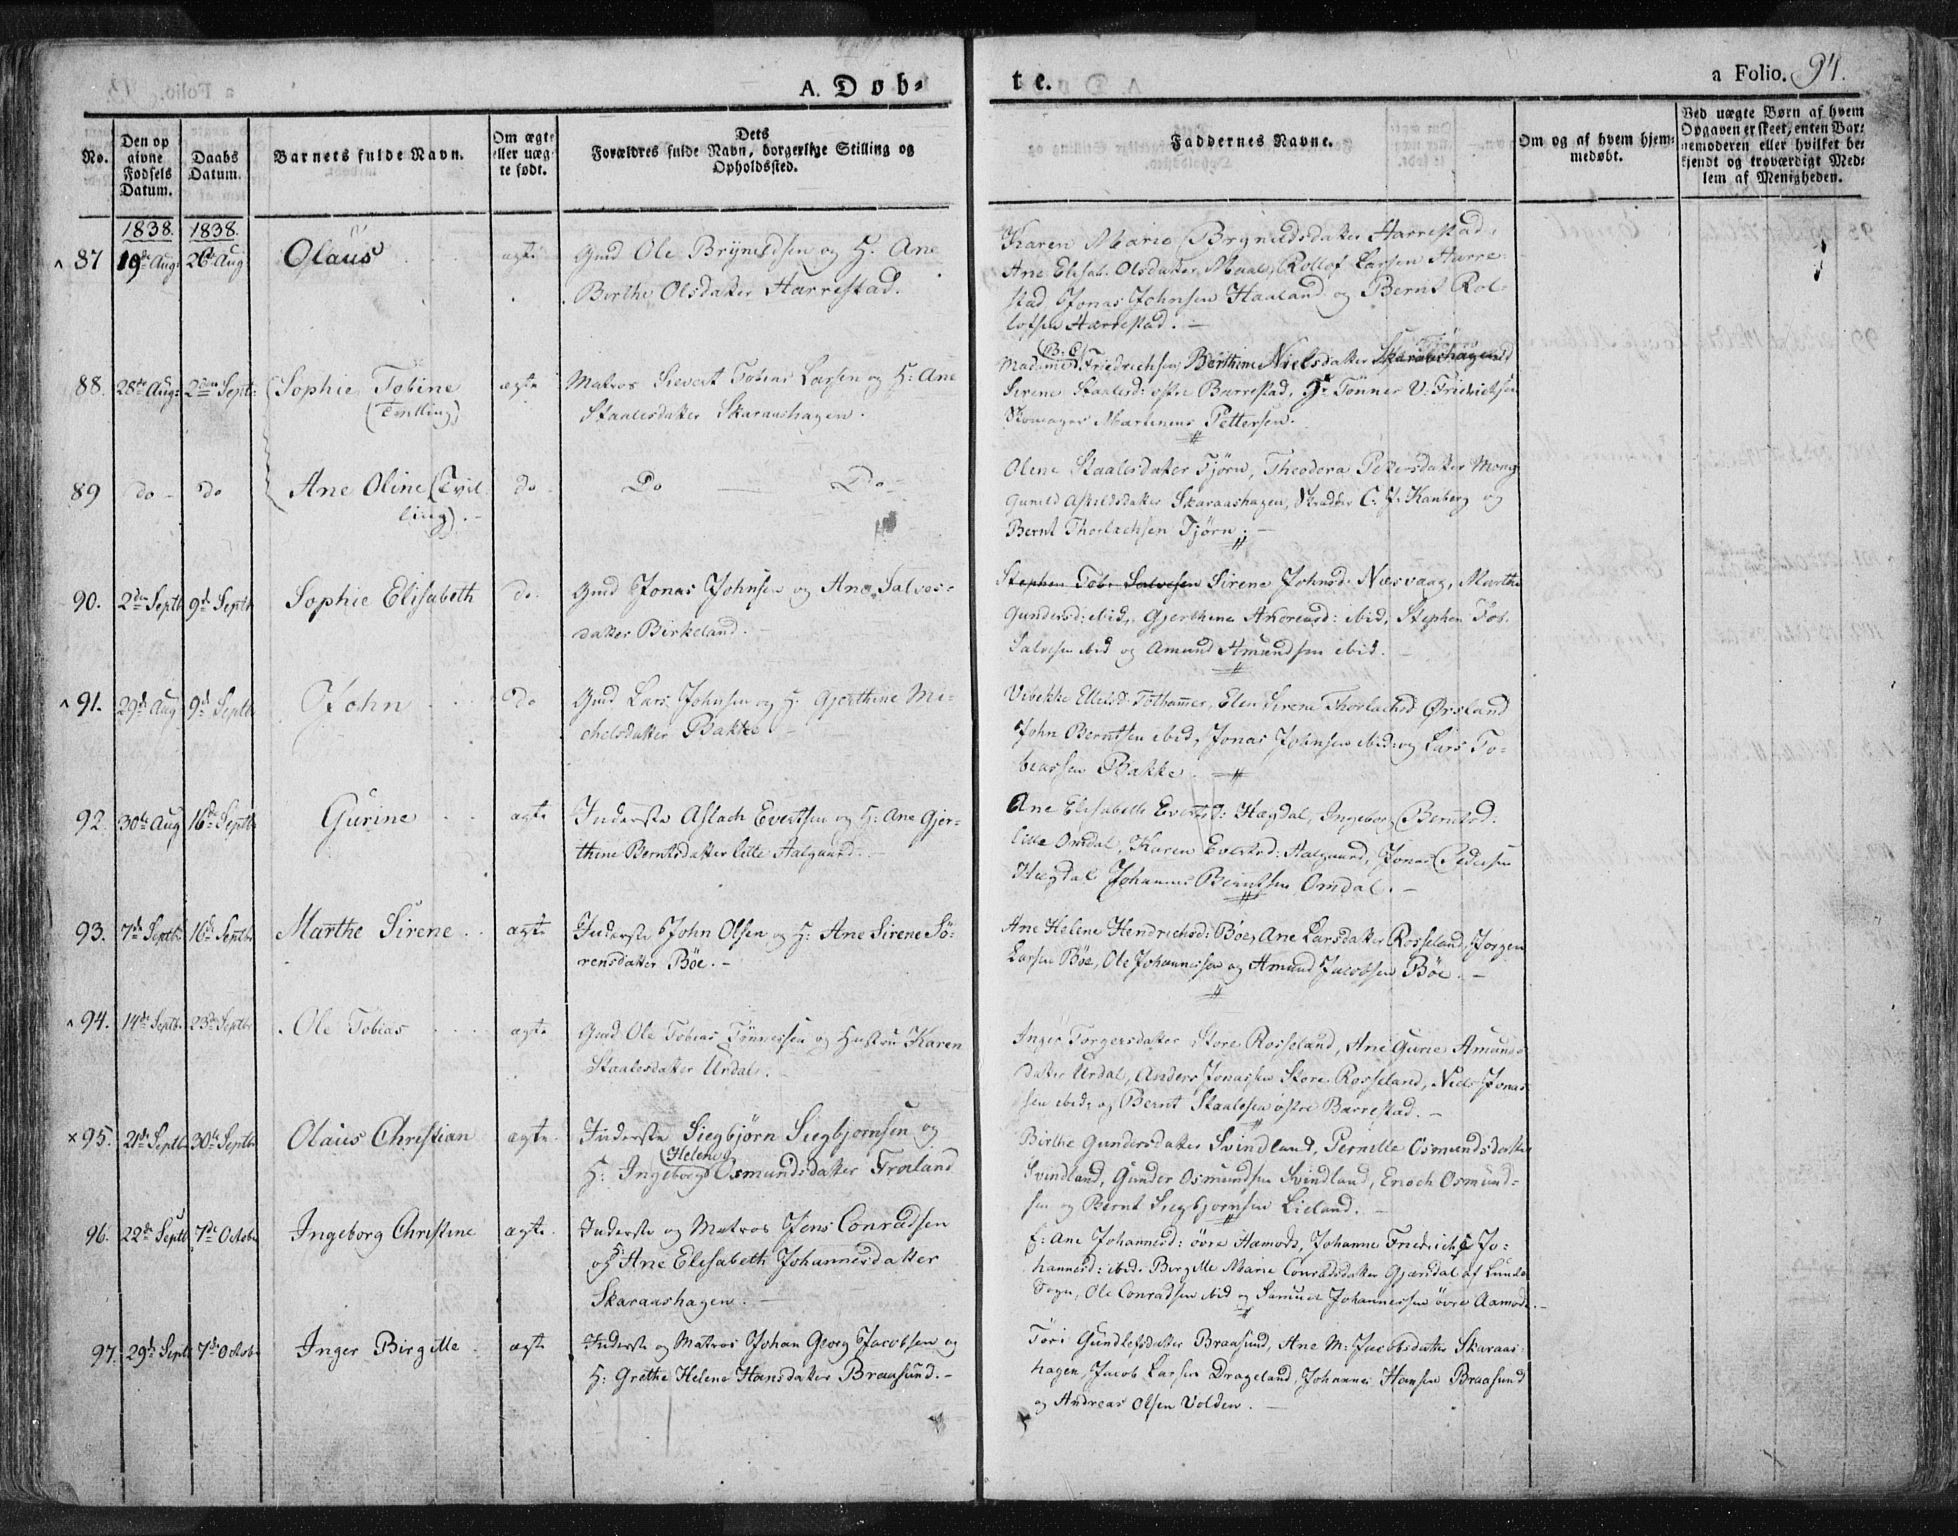 A. Døb=
te.
a Folio. 94.
No.
Den op
givne
Fødsels
Datum.
Daabs
Datum.
Barnets fulde Navn.
Om ægte
eller uæg-
te født.
Dets
Forældres fulde Navn, borgerlige Stilling og
Opholdssted.
Faddernes Navne.
Om og af hvem hjem-
medøbt.
Ved uægte Børn af hvem
Opgaven er skeet, enten Bar-
nemoderen eller hvilket be-
kjendt og troværdigt Med-
lem af Menigheden.
1838. 1838.
87 19de Aug: 26de Aug Olaus ægte Gmd Ole Brynildsen og H. Ane
Birthe Olsdatter Harrestad.
Karen Marie Brynildsdatter Harrestad,
Ane Elisab. Olsdatter Maal, Rollof Larsen Harre-
stad, Jonas Johnsen Haaland og Bernt Rol-
lofsen Harrestad.
88. 28de Aug: 2den Sept: Sophie Tobine ægte Matros Sievert Tobias Larsen og H: Ane
(Tvilling)
Staalesdatter Skaraashagen.
Madame (B. C.) Friedrichsen, Berthine Nielsdatter Skaraashagen
Sirene Staalesd: østre Barrestad, Hr Tønner V. Friedrichsen
Skomager Martinius Pettersen.
89 do do Ane Oline (Tvil
ling). do Do Do
Olene Staalesdatter Tjørn, Theodora Petersdatter Mong
Gunild Askildsdatter Skaraashagen, Skrædder C. F. Kanberg og
Bernt Thorlachsen Tjørn.
90. 2den Septb 9de Septb Sophie Elisabeth do. Gmd Jonas Johnsen og Ane Salves-
datter Birkeland.
Stephen Tob. Salvesen Sirene Johnsd: Næsvaag, Marthe
Gundersd: ibid, Gjerthine Andreasd: ibid, Stephen Tob.
Salvesen ibid og Amund Amundsen ibid.
91. 29de Aug 9de Septb John do Gmd Lars Johnsen og H. Gjerthine Mi-
chelsdatter Bakke
Vibekke Ellefsd: Tothammer, Elen Sirene Thorlachsd Ørsland
John Berntsen ibid, Jonas Johnsen ibid: og Lars To-
biassen Bakke.
92. 30de Aug 16de Septb Gurine ægte Inderste Aslach Evertsen og H: Ane Gjer-
thine Berntsdatter lille Aalgaard.
Ane Elisabeth Evertsd: Hægdal, Ingeborg Berntsd:
lille Omdal, Karen Evertsd: Aalgaard, Jonas Pedersen
Hægdal Johannes Berntsen Omdal.
93. 7de Septb 16de Septb. Marthe Sirene ægte Inderste John Olsen og H: Ane Sirene Sö-
rensdatter Bøe.
Ane Helene Hendrichsd: Bøe, Ane Larsdatter Rosseland, Jørgen
Larsen Bøe, Ole Johannessen og Amund Jacobsen Bøe.
94. 14de Septb. 23de Septbr Ole Tobias ægte Gmd: Ole Tobias Tönnessen og Hustru Karen
Staalesdatter Urdal.
Inger Torgersdatter Store Rosseland, Ane Gurie Amunds
datter Urdal, Anders Jonassen Store Rosseland, Niels Jonas
sen ibid: og Bernt Staalesen østre Barrestad.
× 95. 21de Septb 30de Septbr Olaus Christian ægte Inderste Siegbjørn Siegbjørnsen og
H: Ingeborg (Helene) Osmundsdatter Froiland
Birthe Gundersdatter Svindland, Pernelle Osmundsdatter
Svindland, Gunder Osmundsen Svindland, Enoch Osmund-
sen og Bernt Siegbjørnsen Lieland.
96. 22de Septb 7de Octobr Ingeborg Christine ægte Inderste og Matros Jens Conradsen
og H: Ane Elisabeth Johannesdatter
Skaraashagen.
F: Ane Johannesd: øvre Aamodt, Johanne Friedrichs Jo-
hannesd: ibid. Birgitte Marie Conradsdatter Gjærdal af Lunde
Sogn, Ole Conradsen ibid og Samuel Johannessen øvre Aamodt.
97. 29de Septb 7de Octobr Inger Birgitte ægte Inderste og Matros Johan Georg Jacobsen og
H: Grethe Helene Hansdatter Braasund.
Töri Gundlefsdatter Braasund, Ane M: Jacobsdatter Skaraas-
hagen, Jacob Larsen Drageland, Johannes Hansen Braasund
og Andreas Olsen Volden.